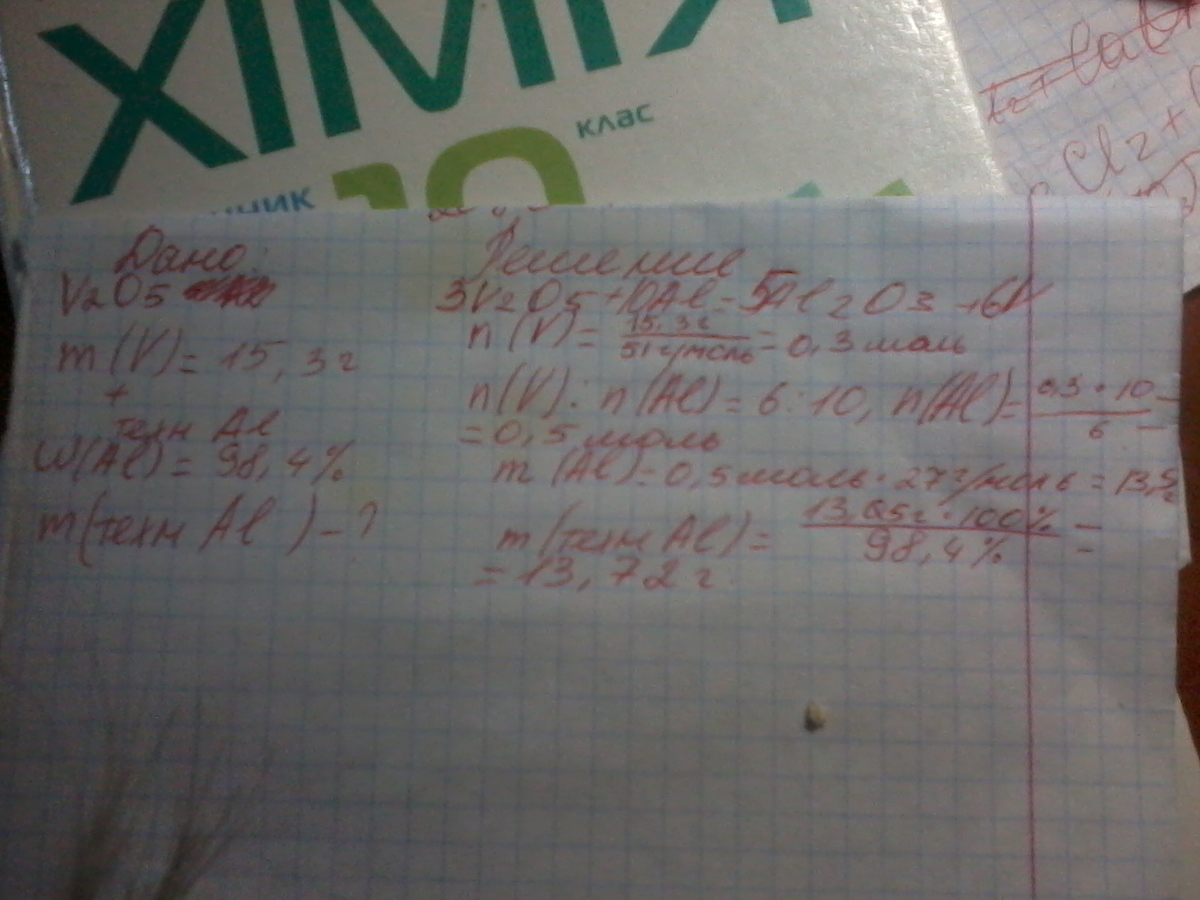 ХІМІЯ
10
клас
Cl2 +
Дано:
V2O5
m(V) = 15,3г
+
техн Al
W(Al) = 98,4%
m(техн Al) - ?
Решение
3V2O5 + 10Al = 5Al2O3 + 6V
n(V) = 15,3г / 51г/моль = 0,3 моль
n(V) : n(Al) = 6 : 10, n(Al) = 0,3 · 10 / 6 =
= 0,5 моль
m(Al) = 0,5 моль · 27г/моль = 13,5г
m(техн Al) = 13,05г · 100% / 98,4% =
= 13,72г